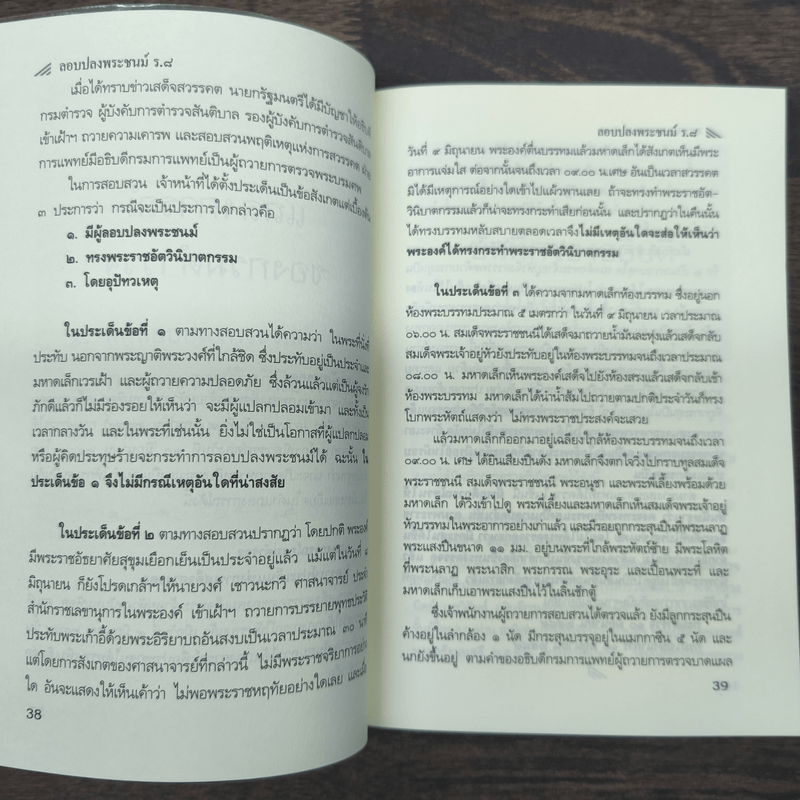 ลอบปลงพระชนม์ ร.๘
เมื่อได้ทราบข่าวเสด็จสวรรคต นายกรัฐมนตรีได้มีบัญชาให้
กรมตำรวจ ผู้บังคับการตำรวจสันติบาล รองผู้บังคับการตำรวจสันติบาล
เข้าเฝ้าฯ ถวายความเคารพ และสอบสวนพฤติเหตุแห่งการสวรรคต
การแพทย์มีอธิบดีกรมการแพทย์เป็นผู้ถวายการตรวจพระบรมศพ
ในการสอบสวน เจ้าหน้าที่ได้ตั้งประเด็นเป็นข้อสังเกตแต่เบื้องต้น
๓ ประการว่า กรณีจะเป็นประการใดกล่าวคือ
๑. มีผู้ลอบปลงพระชนม์
๒. ทรงพระราชอัตวินิบาตกรรม
๓. โดยอุปัทวเหตุ
ในประเด็นข้อที่ ๑ ตามทางสอบสวนได้ความว่า ในพระที่นั่งที่
ประทับ นอกจากพระญาติพระวงศ์ที่ใกล้ชิด ซึ่งประทับอยู่เป็นประจำและ
มหาดเล็กเวรเฝ้า และผู้ถวายความปลอดภัย ซึ่งล้วนแล้วแต่เป็นผู้จงรัก
ภักดีแล้วก็ไม่มีร่องรอยให้เห็นว่า จะมีผู้แปลกปลอมเข้ามา และทั้งเป็น
เวลากลางวัน และในพระที่เช่นนั้น ยิ่งไม่ใช่เป็นโอกาสที่ผู้แปลกปลอม
หรือผู้คิดประทุษร้ายจะกระทำการลอบปลงพระชนม์ได้ ฉะนั้น ใน
ประเด็นข้อ ๑ จึงไม่มีกรณีเหตุอันใดที่น่าสงสัย
ในประเด็นข้อที่ ๒ ตามทางสอบสวนปรากฏว่า โดยปกติ พระองค์
มีพระราชอัธยาศัยสุขุมเยือกเย็นเป็นประจำอยู่แล้ว แม้แต่ในวันที่
มิถุนายน ก็ยังโปรดเกล้าฯให้นายวงศ์ เชาวนะกวี ศาสนาจารย์ ประจำ
สำนักราชเลขานุการในพระองค์ เข้าเฝ้าฯ ถวายการบรรยายพุทธประวัติ
ประทับพระเก้าอี้ด้วยพระอิริยาบถอันสงบเป็นเวลาประมาณ ๓๐ นาที
แต่โดยการสังเกตของศาสนาจารย์ที่กล่าวนี้ ไม่มีพระราชจริยาการอย่าง
ใด อันจะแสดงให้เห็นเค้าว่า ไม่พอพระราชหฤทัยอย่างใดเลย และเมื่อ
38
ลอบปลงพระชนม์ ร.๘
วันที่ ๙ มิถุนายน พระองค์ตื่นบรรทมแล้วมหาดเล็กได้สังเกตเห็นมีพระ
อาการแจ่มใส ต่อจากนั้นจนถึงเวลา ๐๙.๐๐ น.เศษ อันเป็นเวลาสวรรคต
มิได้มีเหตุการณ์อย่างใดเข้าไปแผ้วพานเลย ถ้าจะทรงทำพระราชอัต-
วินิบาตกรรมแล้วก็น่าจะทรงกระทำเสียก่อนนั้น และปรากฏว่าในคืนนั้น
ได้ทรงบรรทมหลับสบายตลอดเวลาจึงไม่มีเหตุอันใดจะส่อให้เห็นว่า
พระองค์ได้ทรงกระทำพระราชอัตวินิบาตกรรม
ในประเด็นข้อที่ ๓ ได้ความจากมหาดเล็กห้องบรรทม ซึ่งอยู่นอก
ห้องพระบรรทมประมาณ ๕ เมตรกว่า ในวันที่ ๙ มิถุนายน เวลาประมาณ
๐๖.๐๐ น. สมเด็จพระราชชนนีได้เสด็จมาถวายน้ำมันละหุ่งแล้วเสด็จกลับ
สมเด็จพระเจ้าอยู่หัวยังประทับอยู่ในห้องพระบรรทมจนถึงเวลาประมาณ
๐๘.๐๐ น. มหาดเล็กเห็นพระองค์เสด็จไปยังห้องสรงแล้วเสด็จกลับเข้า
ห้องพระบรรทม มหาดเล็กได้นำน้ำส้มไปถวายตามปกติประจำวันก็ทรง
โบกพระหัตถ์แสดงว่า ไม่ทรงพระราชประสงค์จะเสวย
แล้วมหาดเล็กก็ออกมาอยู่เฉลียงใกล้ห้องพระบรรทมจนถึงเวลา
๐๙.๐๐ น. เศษ ได้ยินเสียงปืนดัง มหาดเล็กจึงตกใจวิ่งไปกราบทูลสมเด็จ
พระราชชนนี สมเด็จพระราชชนนี พระอนุชา และพระพี่เลี้ยงพร้อมด้วย
มหาดเล็ก ได้วิ่งเข้าไปดู พระพี่เลี้ยงและมหาดเล็กเห็นสมเด็จพระเจ้าอยู่
หัวบรรทมในพระอาการอย่างเก่าแล้ว และมีรอยถูกกระสุนปืนที่พระนลาฏ
พระแสงปืนขนาด ๑๑ มม. อยู่บนพระที่ใกล้พระหัตถ์ซ้าย มีพระโลหิต
ที่พระนลาฏ พระนาสิก พระกรรณ พระอุระ และเปื้อนพระที่ และ
มหาดเล็กเก็บเอาพระแสงปืนไว้ในลิ้นชักตู้
ซึ่งเจ้าพนักงานผู้ถวายการสอบสวนได้ตรวจแล้ว ยังมีลูกกระสุนปืน
ค้างอยู่ในลำกล้อง ๑ นัด มีกระสุนบรรจุอยู่ในแมกกาซีน ๕ นัด และ
นกยังขึ้นอยู่ ตามคำของอธิบดีกรมการแพทย์ผู้ถวายการตรวจบาดแผล
39